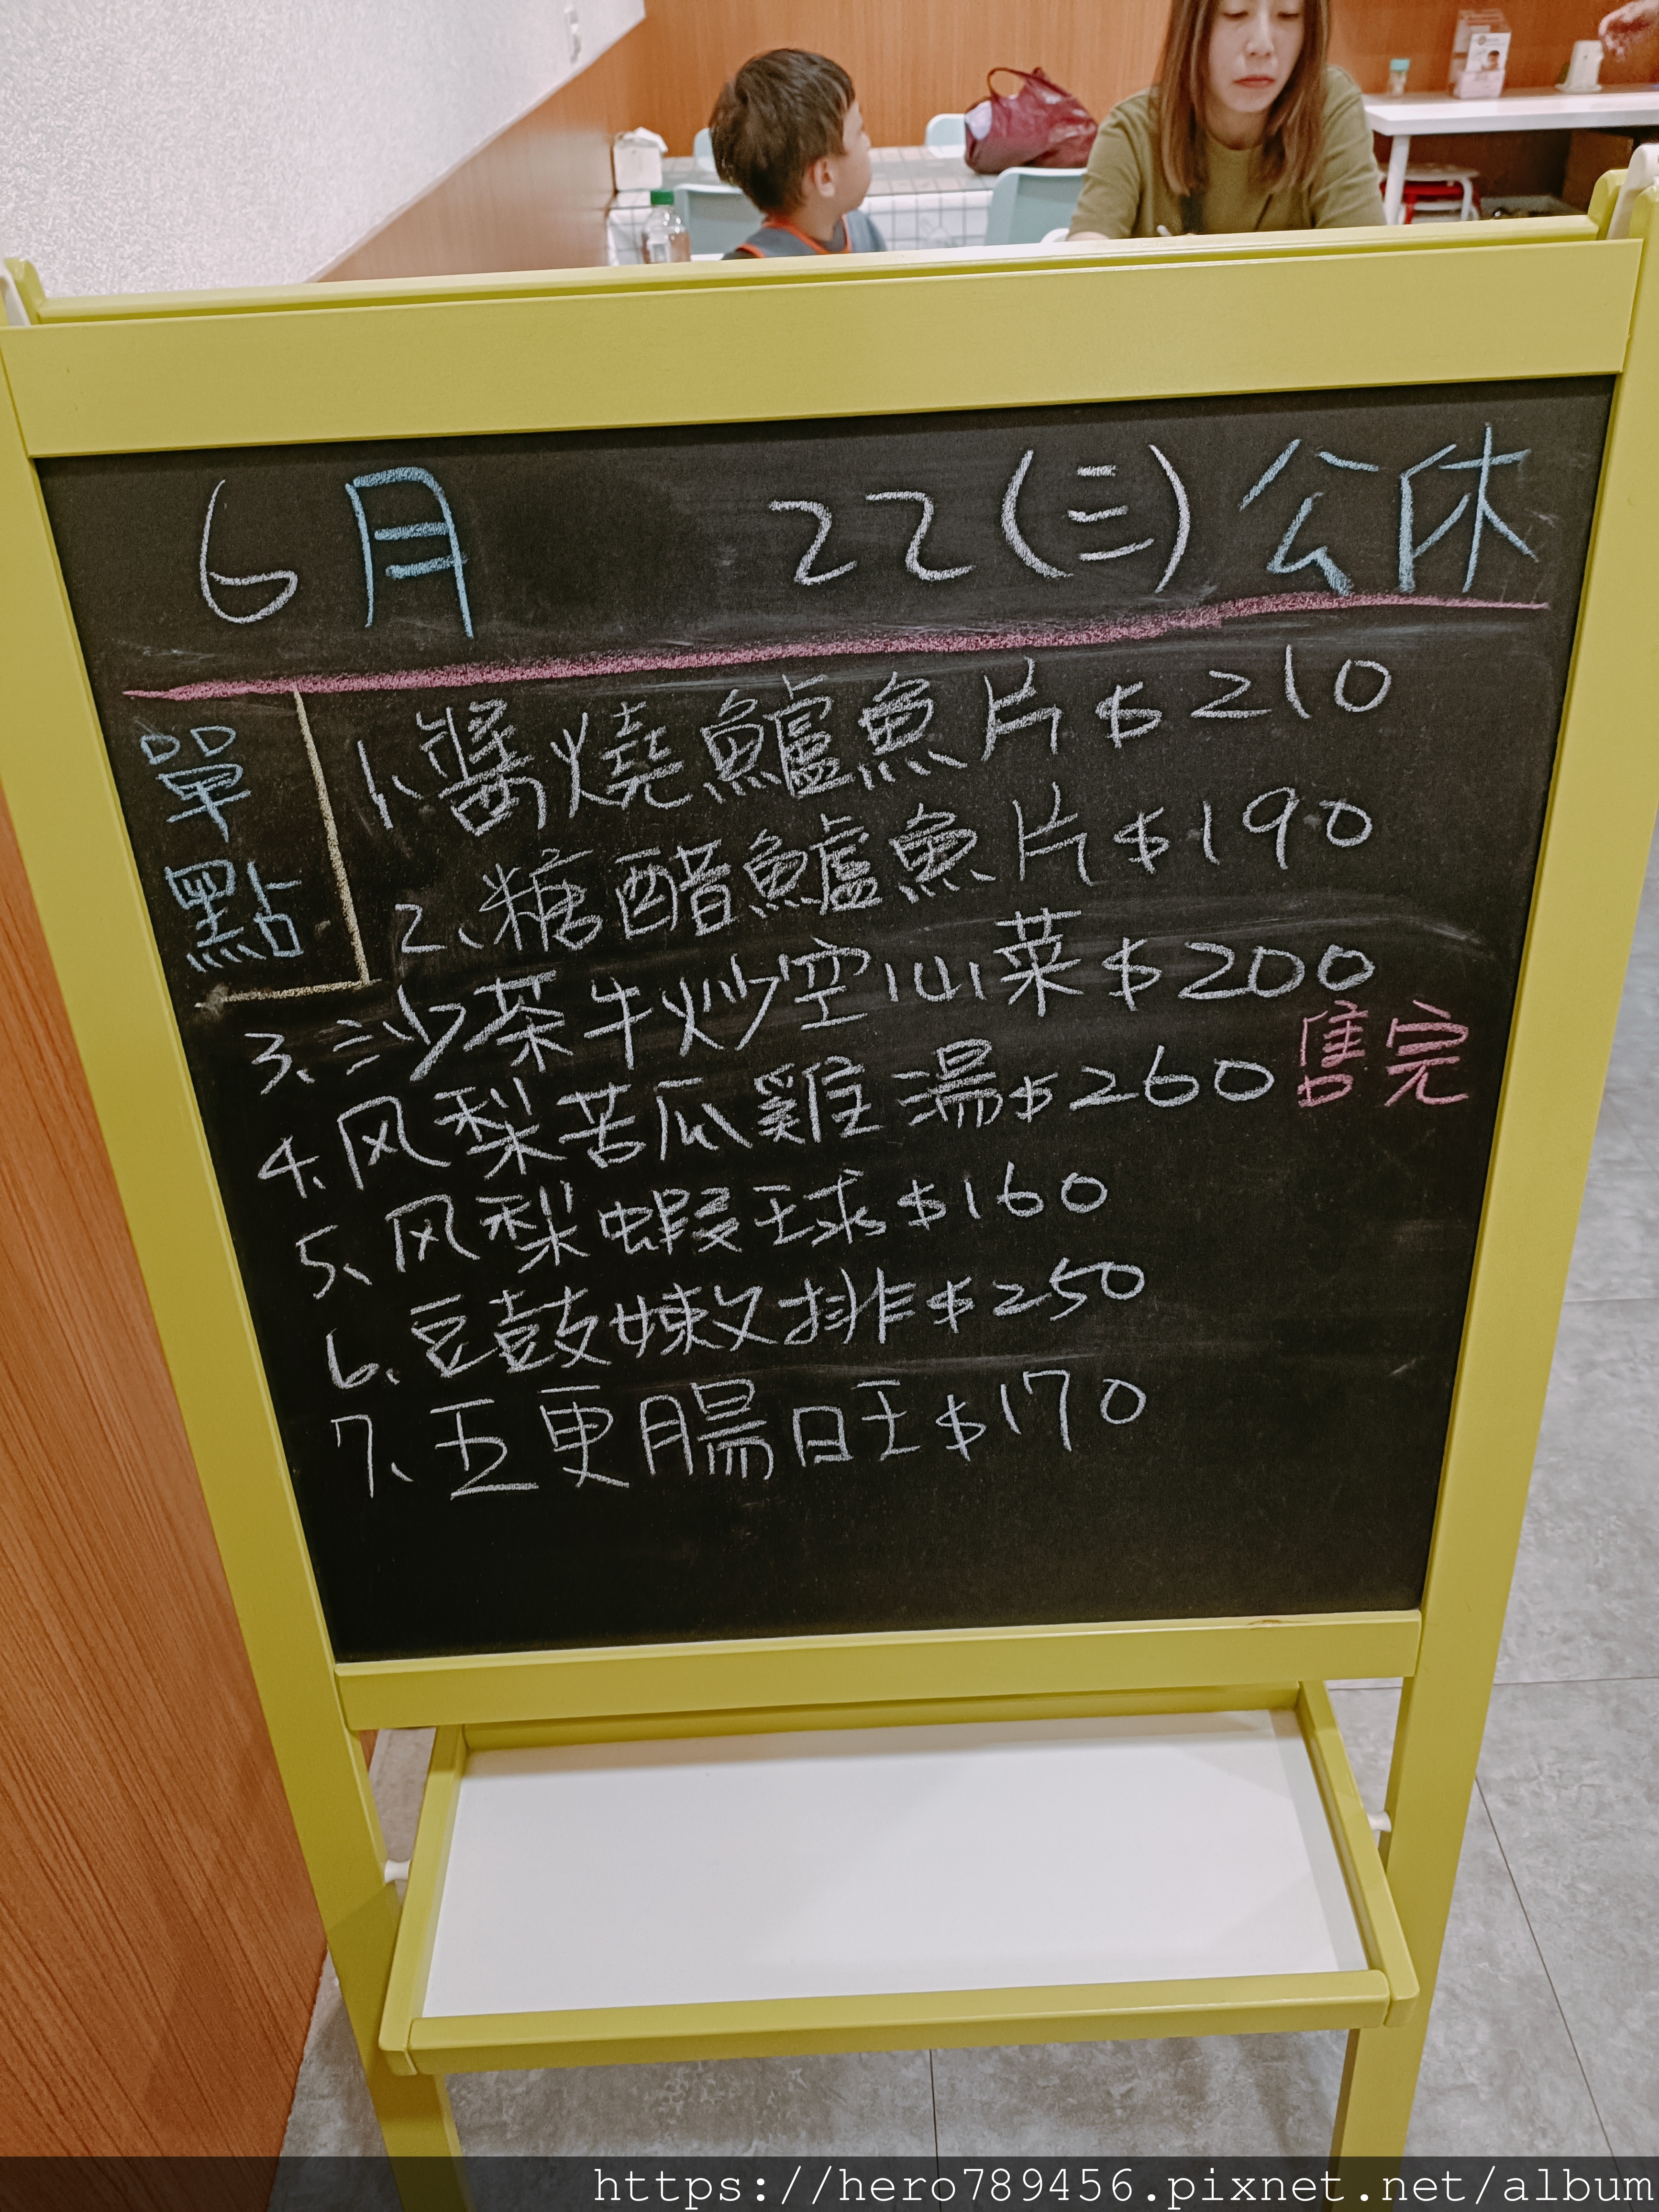 6月 22(三)公休
單點
1、醬燒鱸魚片$210
2、糖醋鱸魚片$190
3、沙茶牛炒空心菜$200
4、风梨苦瓜雞湯$260售完
5、风梨蝦球$160
6、豆鼓嫩排$250
7、五更腸旺$170
https://hero789456.pixnet.net/album